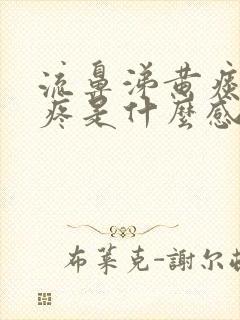 流鼻涕黄痰
疼是什麼感
布莱克-謝尔